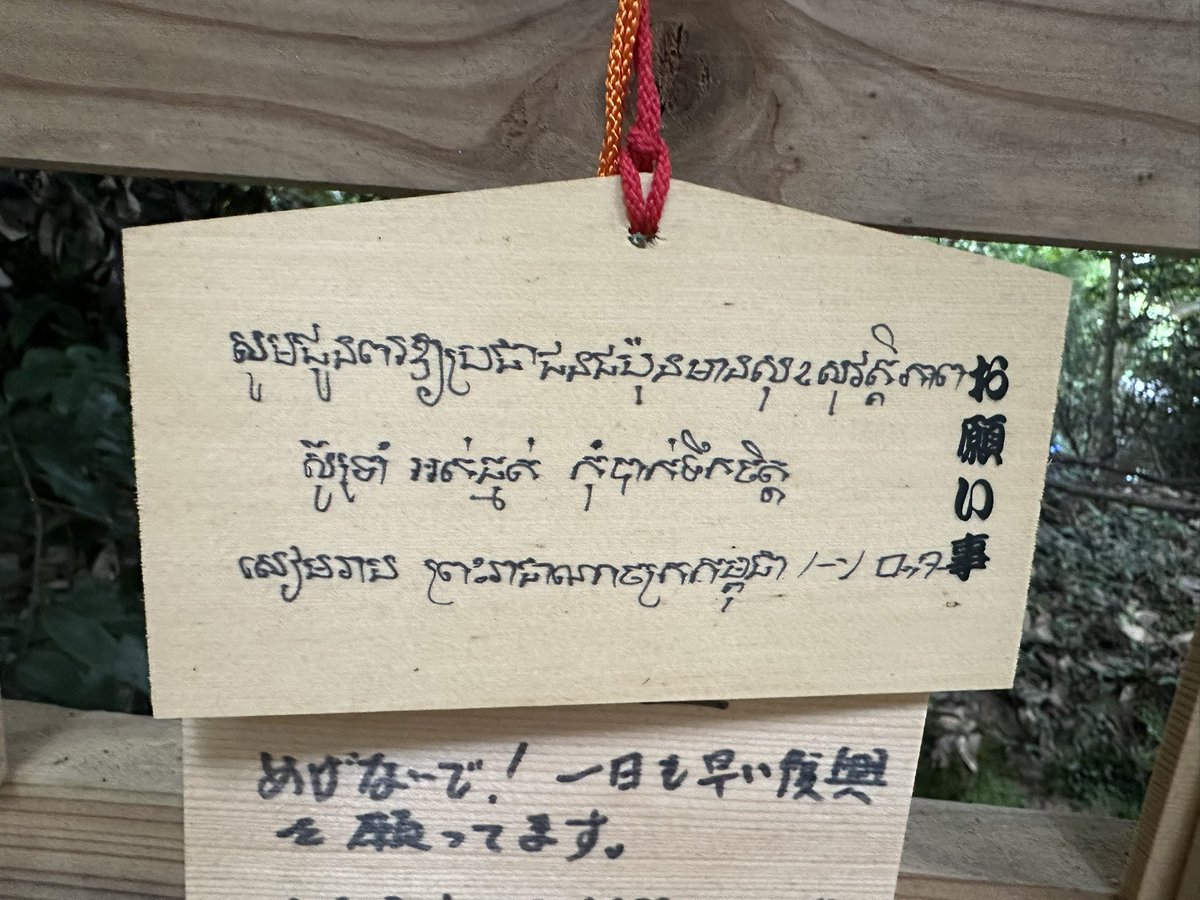 សូមជូនពរឱ្យប្រជាជនជប៉ុនមានសុខសុវត្ថិភាព
ស៊ូទ្រាំ អត់ធ្មត់ កុំបាក់ទឹកចិត្ត
សៀមរាប ព្រះរាជាណាចក្រកម្ពុជា
お願い事
めげないで! 一日も早い復興
を願ってます。